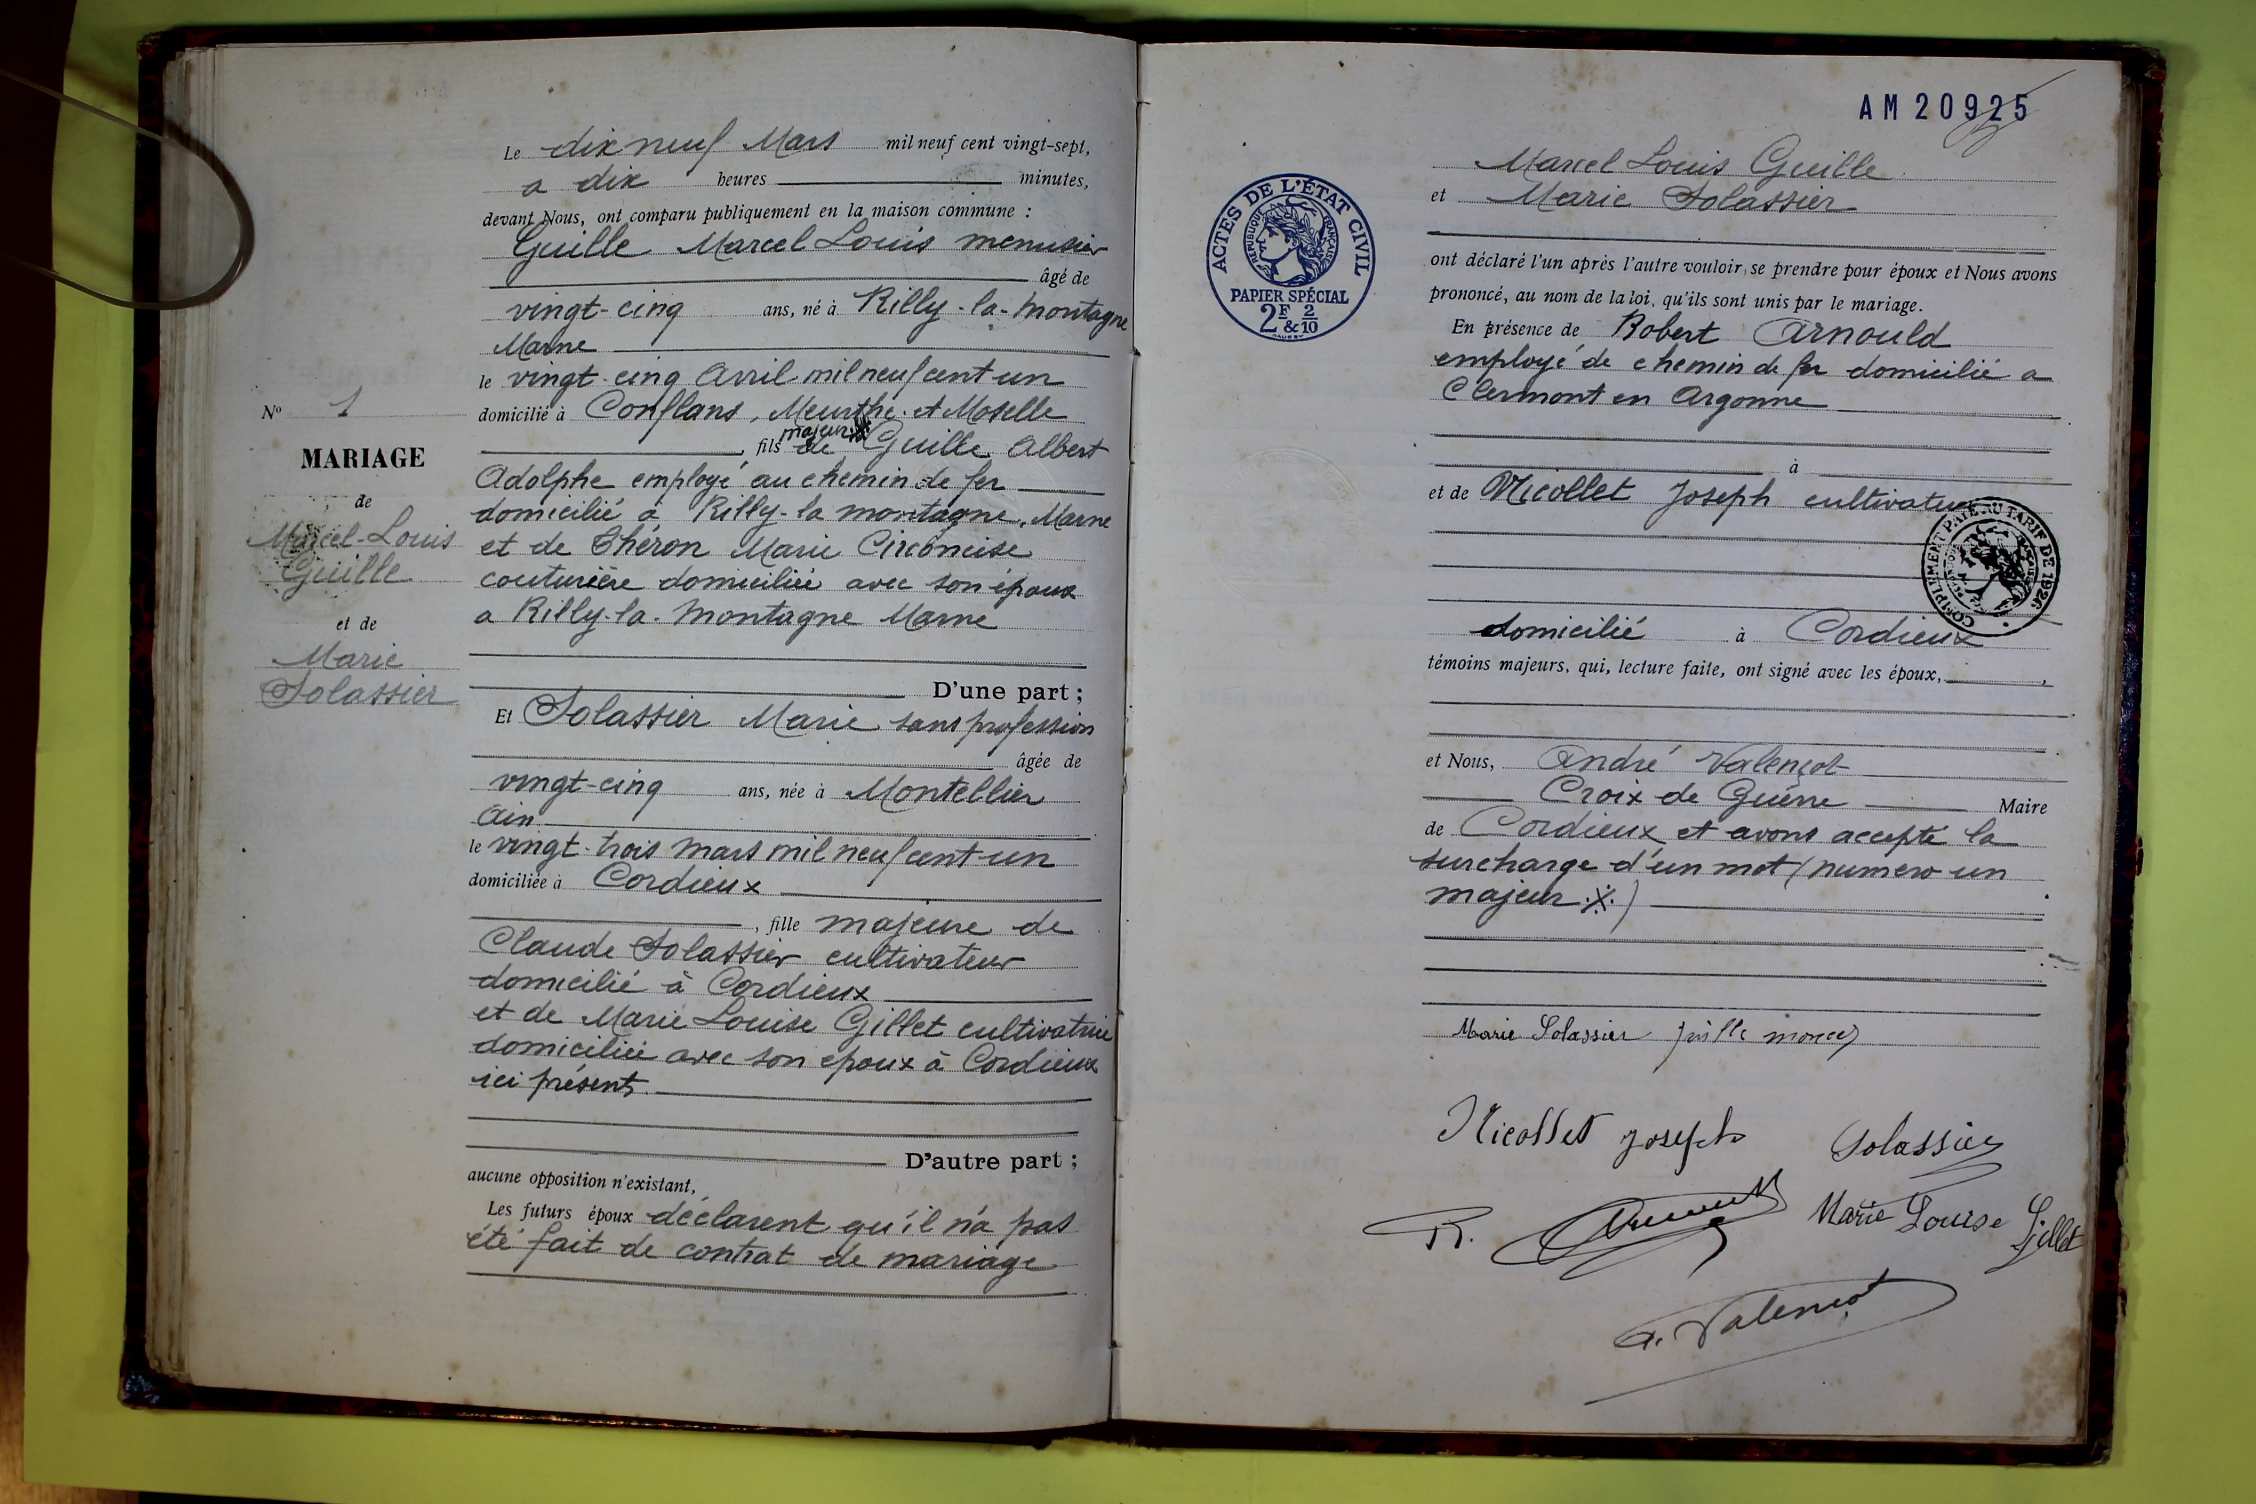 Le dix neuf Mars mil neuf cent vingt-sept,
a dix heures minutes,
devant Nous, ont comparu publiquement en la maison commune :
Guille Marcel Louis menuisier
âgé de
vingt-cinq ans, né à Rilly-la-Montagne
Marne
le vingt-cinq Avril mil neuf cent un
domicilié à Conflans, Meurthe-et-Moselle
majeur
fils de Guille Albert
Adolphe employé au chemin de fer
domicilié à Rilly-la montagne, Marne
et de Théron Marie Circoncise
couturière domiciliée avec son époux
a Rilly-la-Montagne Marne
D'une part ;
Nº 1
MARIAGE
de
Marcel-Louis
Guille
et de
Marie
Solassier
Et Solassier Marie sans profession
âgée de
vingt-cinq ans, née à Montellier
Ain
le vingt-trois Mars mil neuf cent un
domiciliée à Cordieux
, fille majeure de
Claude Solassier cultivateur
domicilié à Cordieux
et de Marie Louise Gillet cultivatrice
domiciliée avec son époux à Cordieux
ici présents
D'autre part ;
aucune opposition n'existant,
Les futurs époux déclarent qu'il n'a pas
été fait de contrat de mariage
AM 20925
ACTES DE L'ÉTAT CIVIL
RÉPUBLIQUE FRANÇAISE
PAPIER SPÉCIAL
2F & 2/10
Marcel Louis Guille
et Marie Solassier
ont déclaré l'un après l'autre vouloir se prendre pour époux et Nous avons
prononcé, au nom de la loi, qu'ils sont unis par le mariage.
En présence de Robert Arnould
employé de chemin de fer domicilié a
Clermont en Argonne
à
et de Nicollet Joseph cultivateur
COMPLÉMENT PAYÉ AU TARIF DE 1926
domicilié à Cordieux
témoins majeurs, qui, lecture faite, ont signé avec les époux,
et Nous, André Valençot
Croix de Guerre Maire
de Cordieux et avons accepté la
surcharge d'un mot (numero un
majeur )
Marie Solassier
Nicollet Joseph Solassier
R.
Marie Louise Gillet
A. Valençot